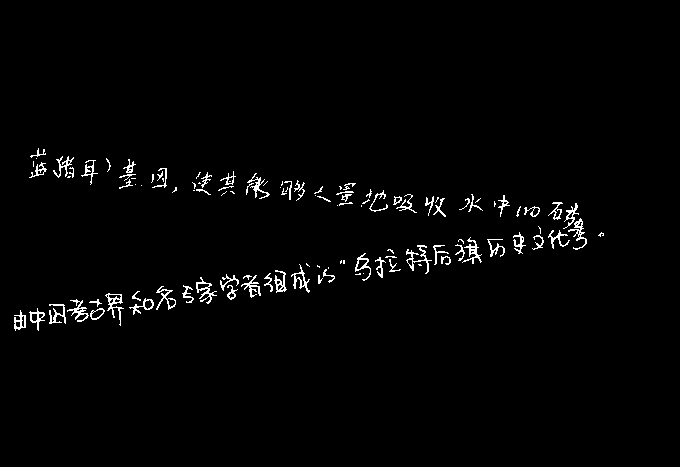 蓝猪耳)基因,使其能够大量地吸收水中的磷
由中国考古界知名专家学者组成的"乌拉特后旗历史文化考。